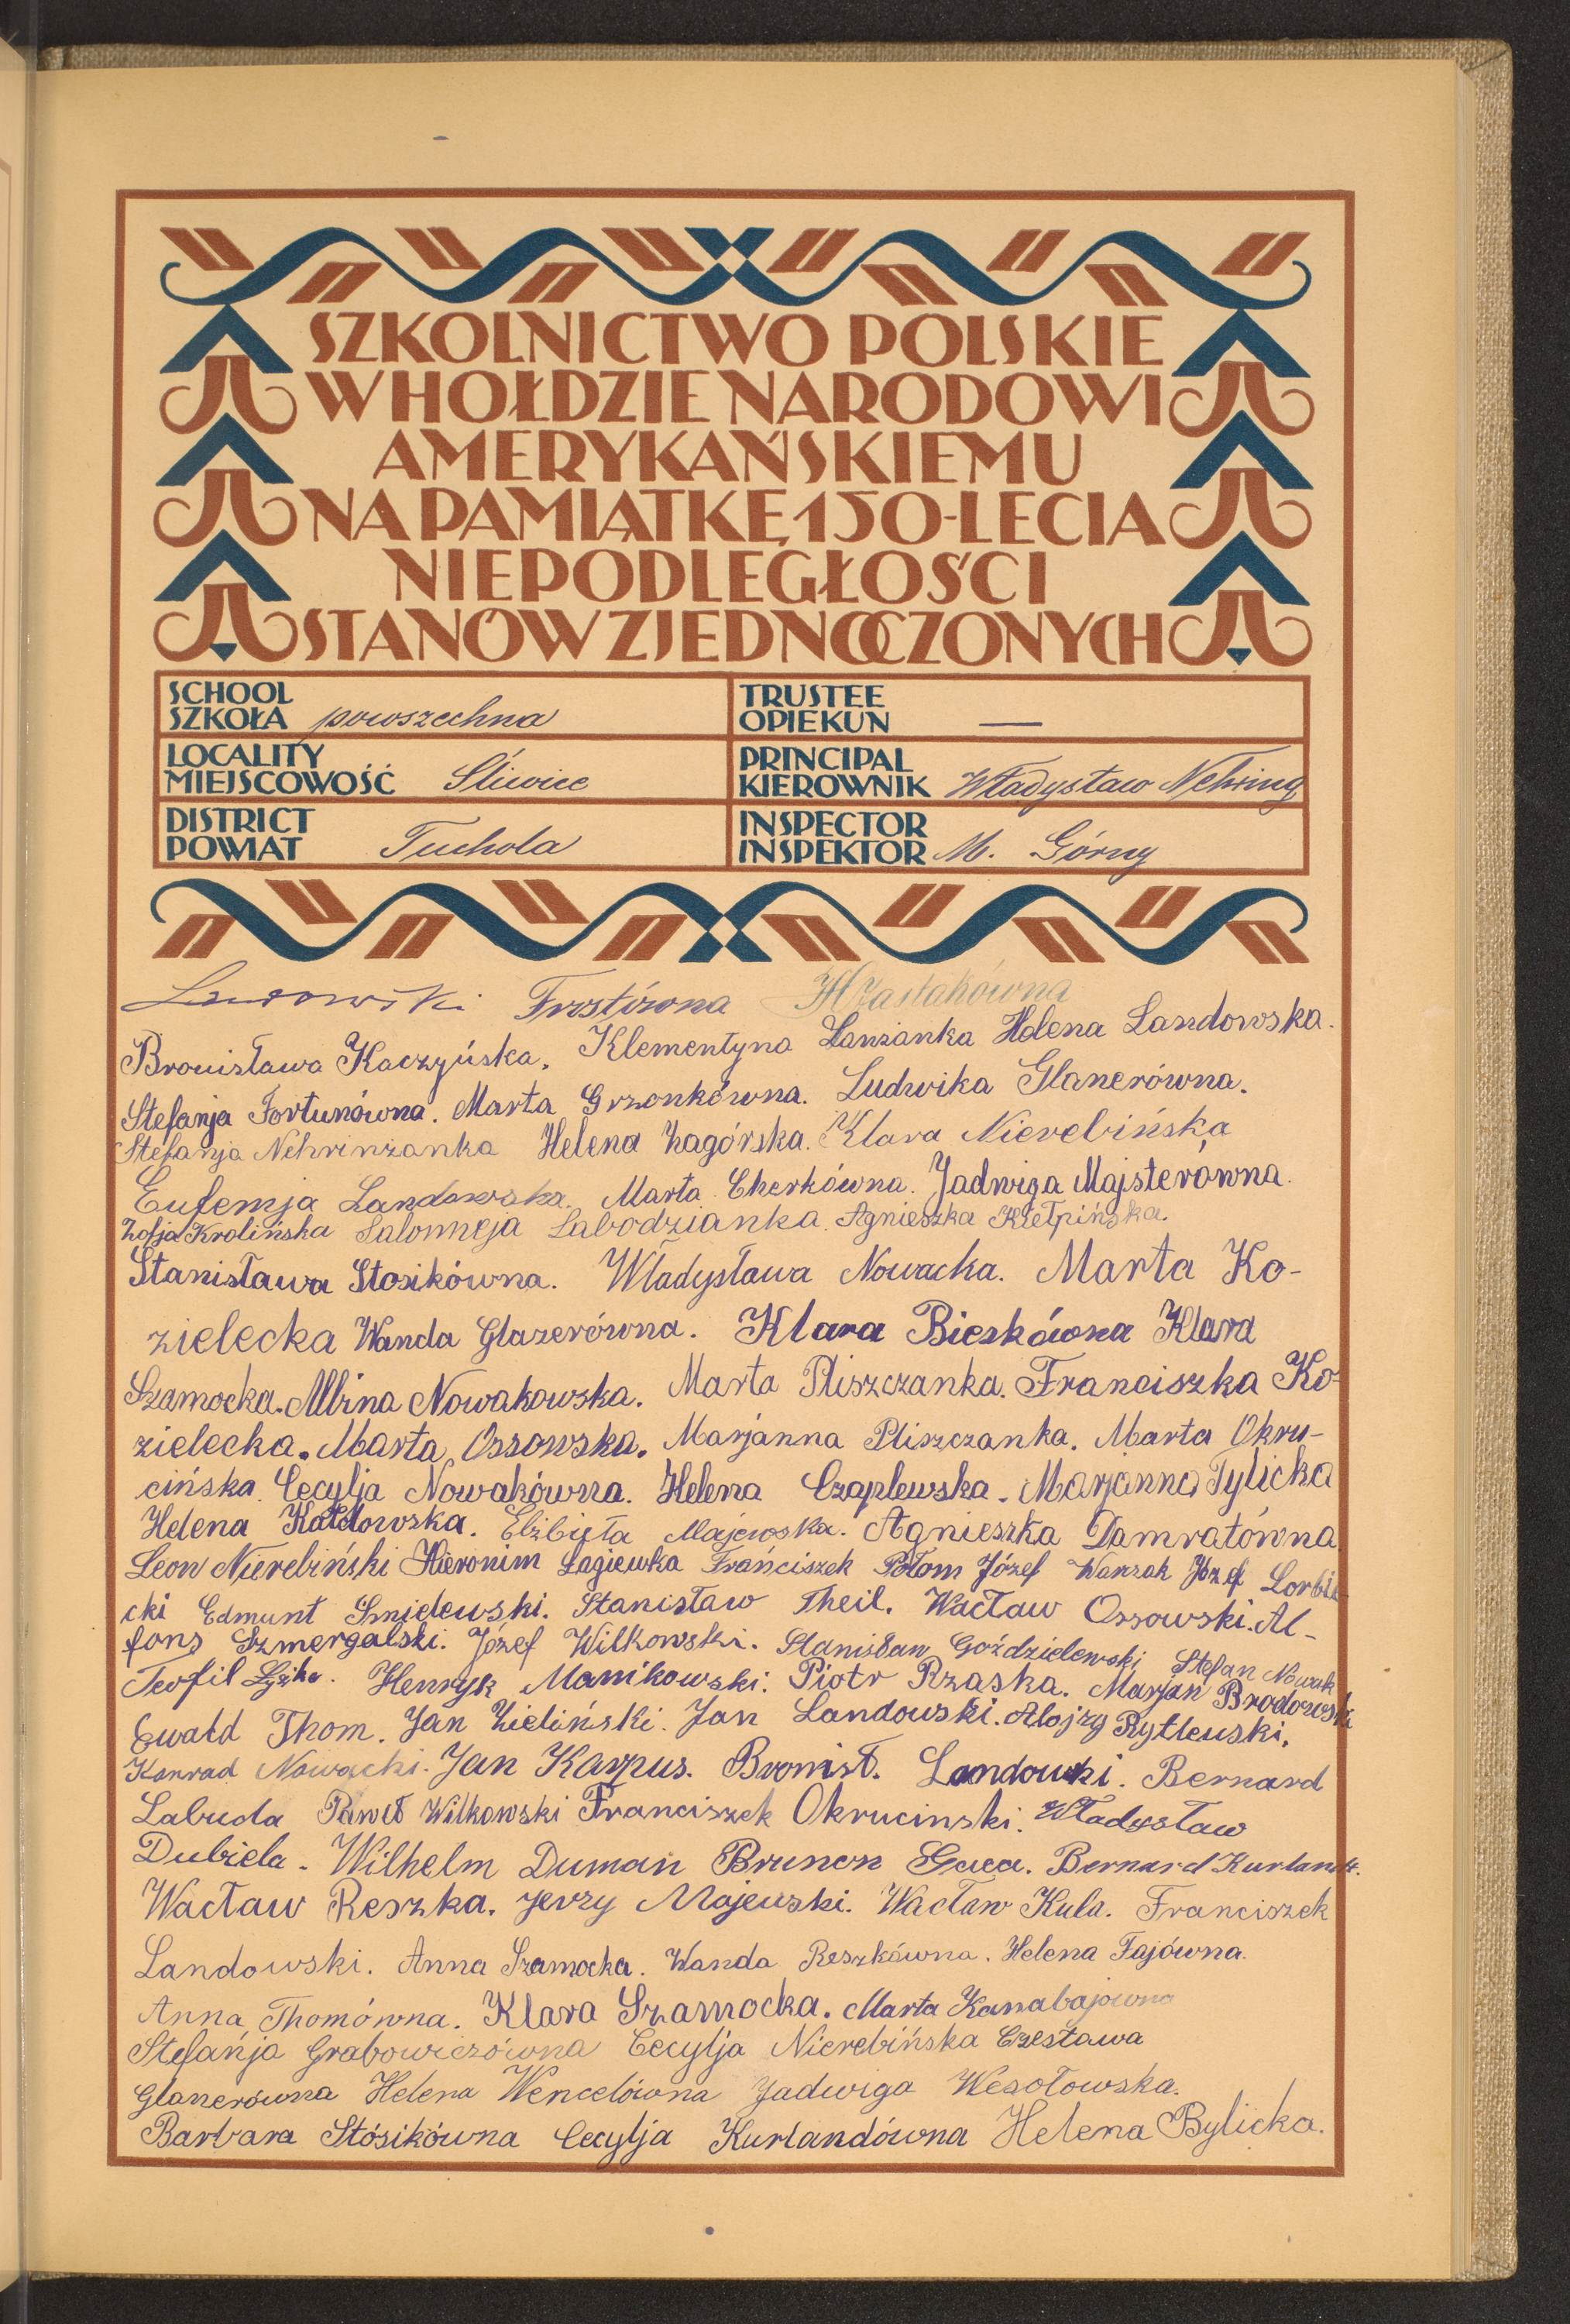 SZKOLNICTWO POLSKIE
W HOŁDZIE NARODOWI
AMERYKAŃSKIEMU
NA PAMIĄTKĘ 150-LECIA
NIEPODLEGŁOŚCI
STANÓW ZJEDNOCZONYCH
SCHOOL
SZKOŁA powszechna
TRUSTEE
OPIEKUN —
LOCALITY
MIEJSCOWOŚĆ Śliwice
PRINCIPAL
KIEROWNIK Władysław Nehring
DISTRICT
POWIAT Tuchola
INSPECTOR
INSPEKTOR M. Górny
Frostówna
Bronisława Kaczyńska. Klementyna Lanzanka Helena Landowska.
Stefanja Fortunówna. Marta Grzonkówna. Ludwika Glanerówna.
Stefanja Nehrinżanka Helena Zagórska. Klara Nierebińska
Eufemja Landowska. Marta Cherkówna. Jadwiga Majsterówna.
Zofja Krolińska Salomeja Labodzianka. Agnieszka Kiełpińska.
Stanisława Stosikówna. Władysława Nowacka. Marta Ko-
zielecka Wanda Glazerówna. Klara Bieskówna Klara
Szamocka. Albina Nowakowska. Marta Pliszczanka. Franciszka Ko-
zielecka. Marta Ossowska. Marjanna Pliszczanka. Marta Okru-
cińska. Cecylja Nowakówna. Helena Czaplewska. Marjanna Tylicka
Helena Kałdowska. Elżbieta Majewska. Agnieszka Damratówna.
Leon Nierebiński Hieronim Łagiewka Frańciszek Połom Józef Warzak Józef Lorbie-
cki Edmunt Śmielewski. Stanisław Theil. Wacław Ossowski. Al-
fons Szmergalski. Józef Wilkowski. Stanisław Goździelewski Stefan Nowak
Teofil Łyżka. Henryk Manikowski. Piotr Rzaska. Marjan Brodowski
Ewald Thom. Jan Zieliński. Jan Landowski. Alojzy Rytlewski.
Konrad Nowacki. Jan Karpus. Bronisł. Landowski. Bernard
Labuda Paweł Wilkowski Franciszek Okrucinski. Władysław
Dubiela. Wilhelm Duman Brunon Gaca. Bernard Kurlandt.
Wacław Reszka. Jerzy Majewski. Wacław Kula. Franciszek
Landowski. Anna Szamocka. Wanda Reszkówna. Helena Fajówna.
Anna Thomówna. Klara Szamocka. Marta Kanabajówna
Stefanja Grabowiczówna Cecylja Nierebińska Czesława
Glanerówna Helena Wencelówna Jadwiga Wesołowska.
Barbara Stósikówna Cecylja Kurlandówna Helena Bylicka.